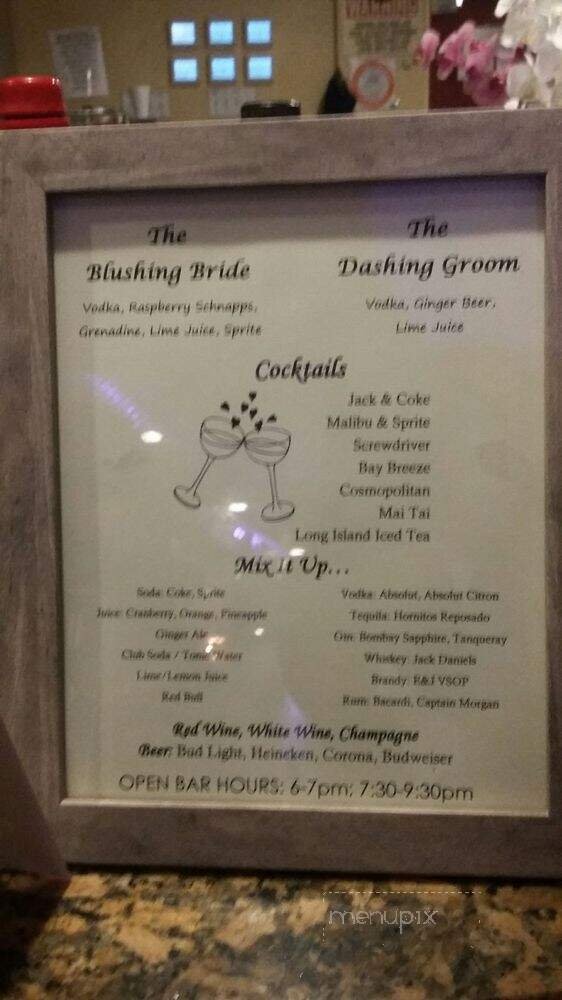 The
Blushing Bride
Vodka, Raspberry Schnapps,
Grenadine, Lime Juice, Sprite
The
Dashing Groom
Vodka, Ginger Beer,
Lime Juice
Cocktails
Jack & Coke
Malibu & Sprite
Screwdriver
Bay Breeze
Cosmopolitan
Mai Tai
Long Island Iced Tea
Mix It Up...
Soda: Coke, Sprite
Juice: Cranberry, Orange, Pineapple
Ginger Ale
Club Soda / Tonic Water
Lime/Lemon Juice
Red Bull
Vodka: Absolut, Absolut Citron
Tequila: Hornitos Reposado
Gin: Bombay Sapphire, Tanqueray
Whiskey: Jack Daniels
Brandy: E&J VSOP
Rum: Bacardi, Captain Morgan
Red Wine, White Wine, Champagne
Beer: Bud Light, Heineken, Corona, Budweiser
OPEN BAR HOURS: 6-7pm; 7:30-9:30pm
menupix